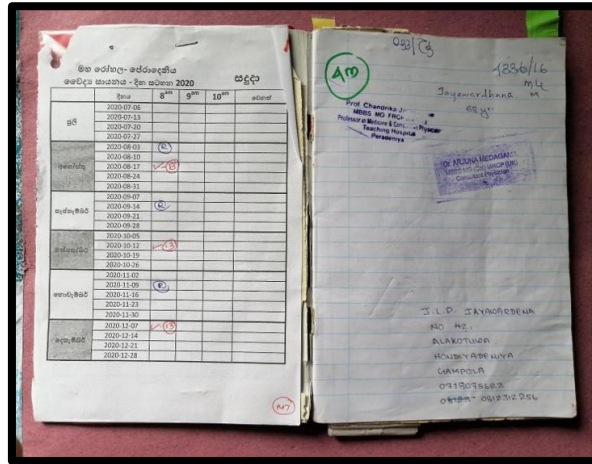 මහ රෝහල- පේරාදෙනිය
වෛද්‍ය සායනය - දින සටහන 2020 සඳුදා
දිනය 8am 9am 10am වෙනත්
ජූලි
2020-07-06
2020-07-13
2020-07-20
2020-07-27
අගෝස්තු
2020-08-03 R
2020-08-10
2020-08-17 13
2020-08-24
2020-08-31
සැප්තැම්බර්
2020-09-07
2020-09-14 R
2020-09-21
2020-09-28
ඔක්තෝබර්
2020-10-05
2020-10-12 13
2020-10-19
2020-10-26
නොවැම්බර්
2020-11-02
2020-11-09 R
2020-11-16
2020-11-23
2020-11-30
දෙසැම්බර්
2020-12-07 13
2020-12-14
2020-12-21
2020-12-28
AM
1336/16
Jayawardhana M
Prof Chandrika
MBBS MD FRCP
Professor in Medicine & Consultant Physician
Teaching Hospital
Peradeniya
Dr. ARJUNA MEDAGAMA
Consultant Physician
J.L.P. JAYAWARDENA
NO 42,
ALAKOTUWA
HONDIYADENIYA
GAMPOLA
0812312256